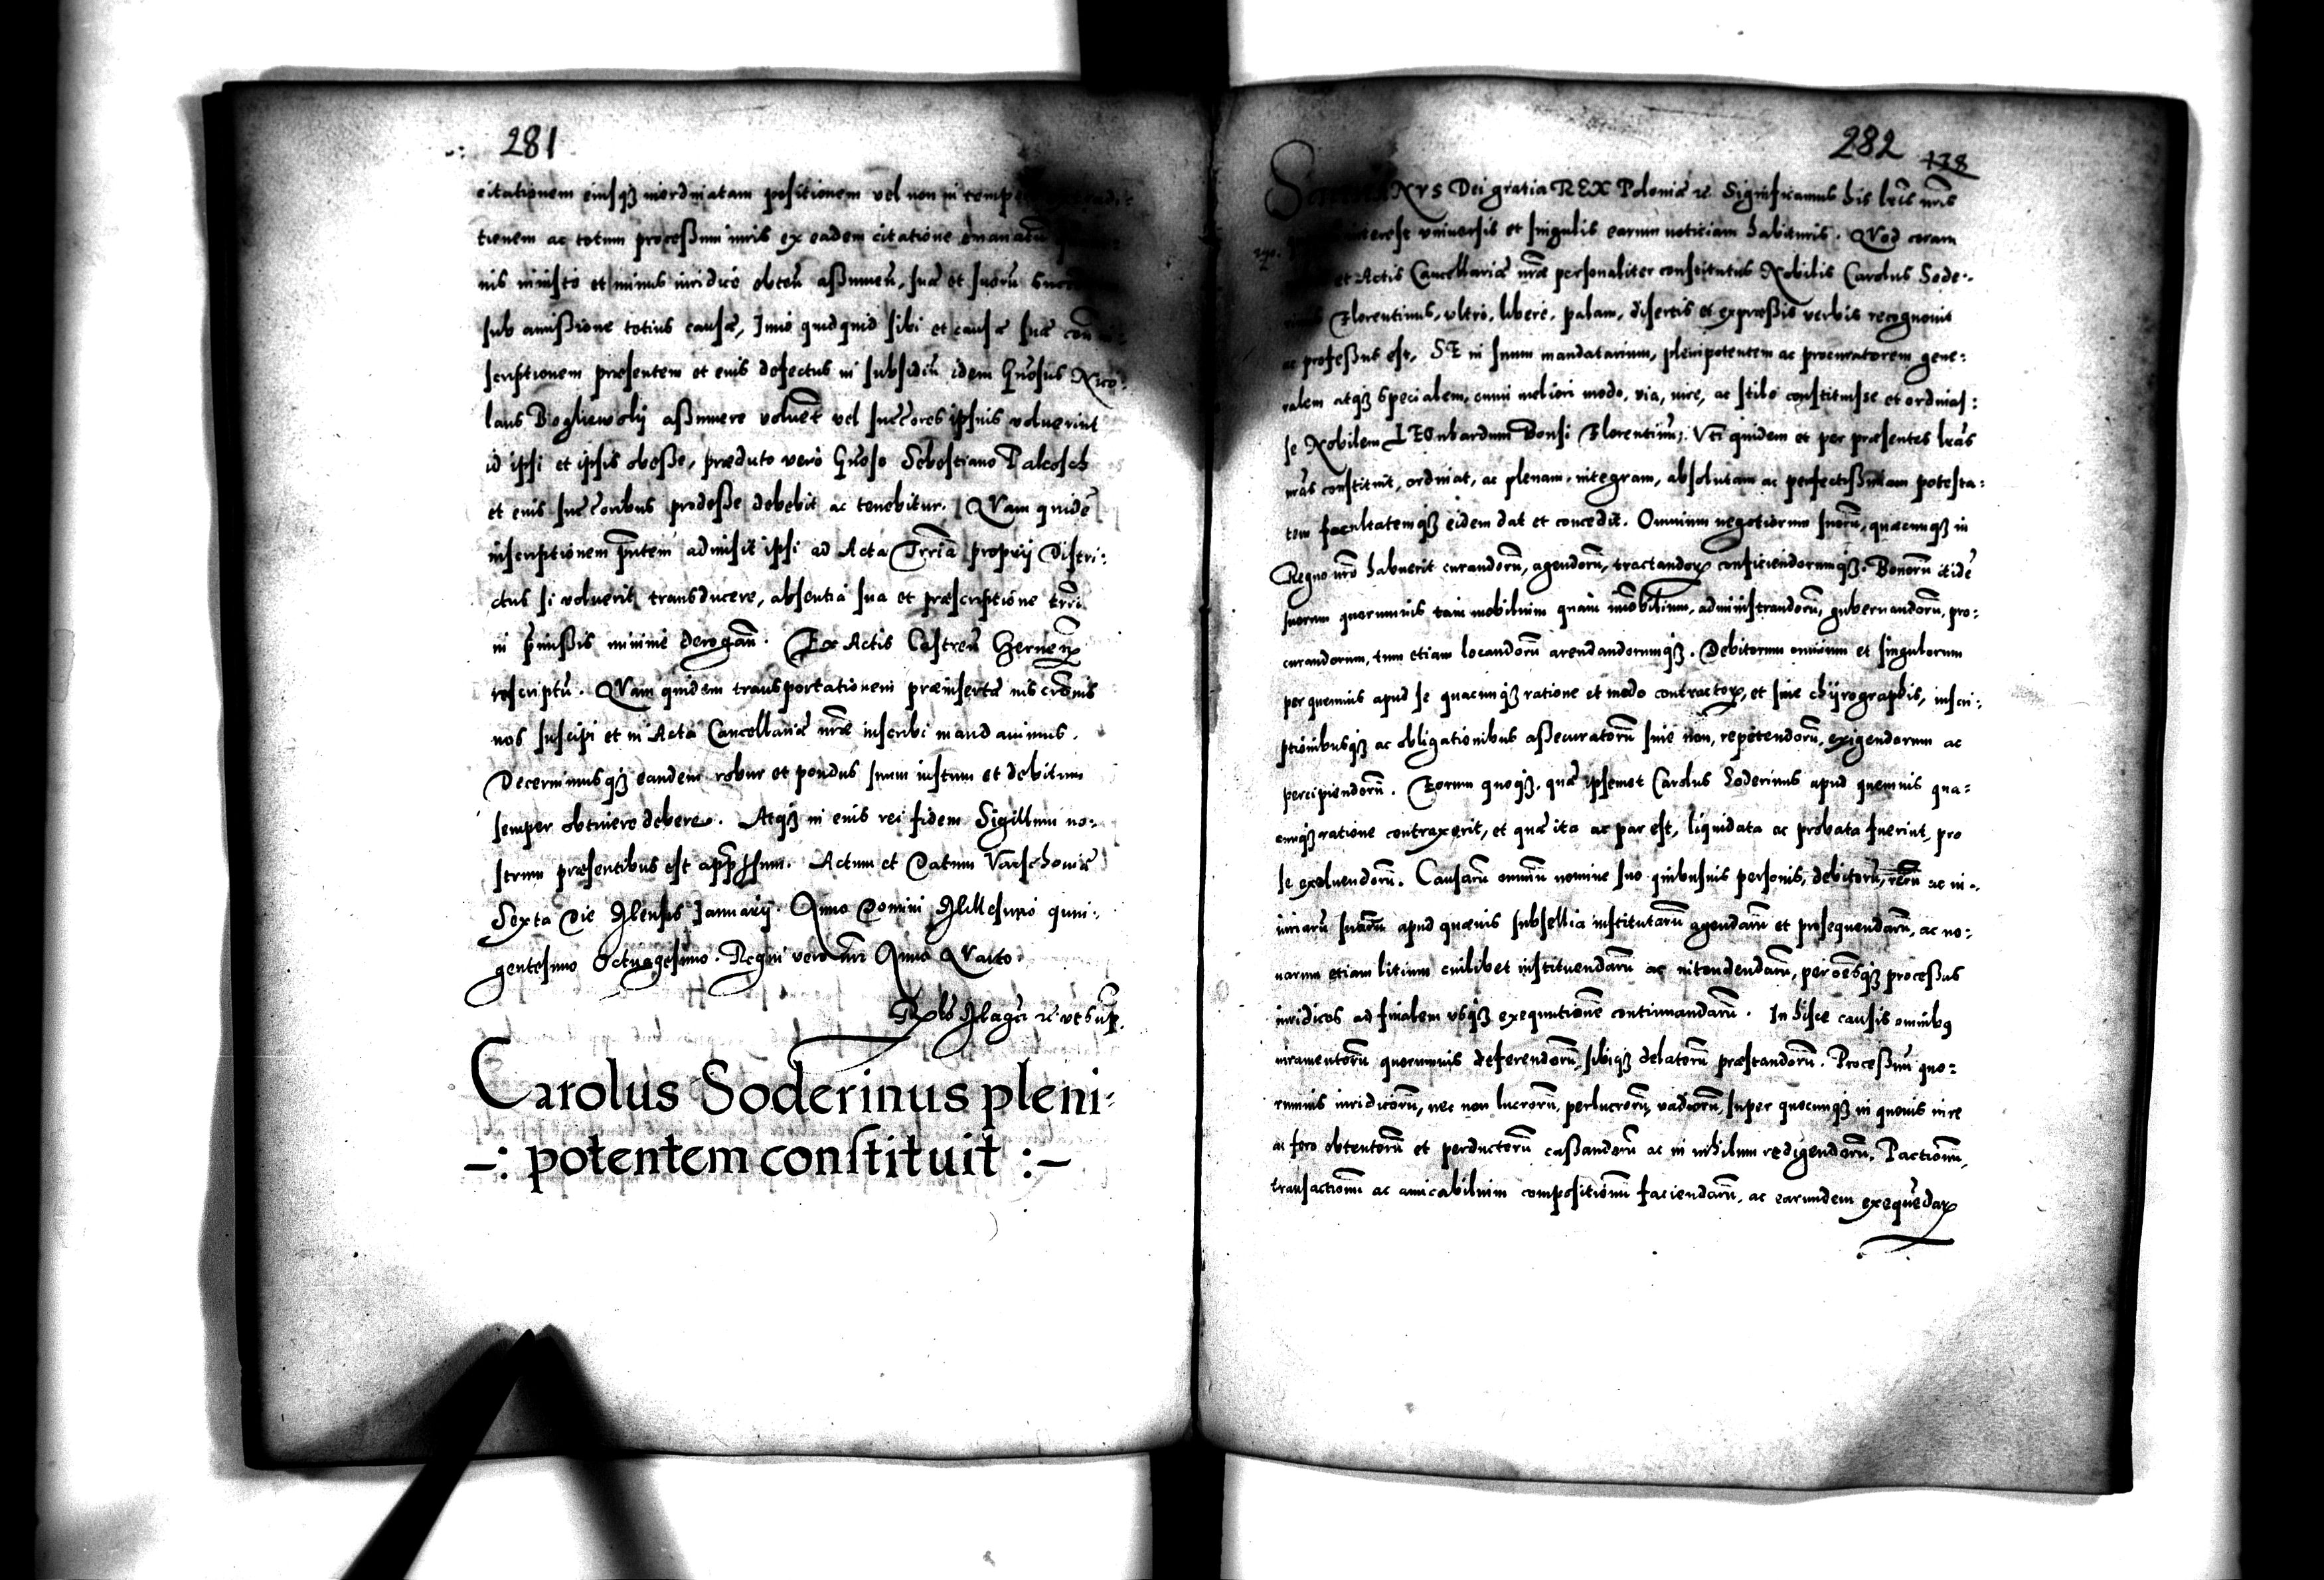 281
citationem eiusq3 inordinatam positionem vel non in temp
tionem ac totum processum iuris ex eadem citatione emanatu
nis iniusto et minus iuridico obten̄ assumen̄, suæ et suorū
sub amissione totius causæ, Imo quidquid sibi et causæ suæ con
scriptionem præsentem et eius defectus in subsidiū idem Gn̄osus Nico:
laus Bogliewsky assumere voluer̄t vel succ̄ores ipsius voluerint
id ipsi et ipsis obesse, præducto vero Gn̄oso Sebestiano Palcosch
et eius succ̄oribus prodesse debebit ac tenebitur. QVam quidē
inscriptionem pn̄tem admisit ipsi ad Acta Trr̄ia proprij Distri:
ctus si voluerit transducere, absentia sua et præscriptione trr̄i
in p̄missis minime derogan̄. Ex Actis Castren̄
rescriptū. QVam quidem transportationem præinsertā
nos suscipi et in Acta Cancellariæ nr̄æ inscribi mandauimus.
Decernimusq3 eandem robur et pondus suum iustum et debitum
semper obtinere debere. Atq3 in eius rei fidem Sigillum no:
strum præsentibus est app̄ssum. Actum et Datum Varschouiæ
Sexta Die Mensis Januarij. Anno Domini Millesimo quin:
gentesimo Octuagesimo. Regni vero nr̄i Anno QVarto
vt sup̄.
Carolus Soderinus pleni:
-: potentem constituit :-
282
138
NVS Dei gratia REX Poloniæ &c. Significamus his lr̄is nr̄is
interest vniuersis et singulis earum noticiam habituris. QVod coram
et Actis Cancellariæ nr̄æ personaliter constitutus Nobilis Carolus Sode:
Florentinus, vltro, libere, palam, disertis et expræssis verbis recognouit
ac professus est, SE in suum mandatarium, plenipotentem ac procuratorem gene:
ralem atq3 specialem, omni meliori modo, via, iure, ac stilo constituisse et ordinas:
se Nobilem LEOnbardum Bonsi Florentinū, Vti quidem et per præsentes lr̄as
nr̄as constituit, ordinat, ac plenam, integram, absolutam ac perfectissimam potesta:
tem facultatemq3 eidem dat et concedit. Omnium negotiorum suorū, quæcunq3 in
Regno nr̄o habuerit curandorū, agendorū, tractandor̨ conficiendorumq3. Bonorū itidē
suorum quorumuis tam mobilium quam im̄obilium, administrandorū, gubernandorū, pro:
curandorum, tum etiam locandorū arendandorumq3. Debitorum omnium et singulorum
per quemuis apud se quacunq3 ratione et modo contractor̨, et siue chÿrographis, inscri:
ptionibusq3 ac obligationibus assecuratorū siue non, repetendorū, exigendorum ac
percipiendorū. Eorum quoq3, quæ ipsemet Carolus Soderinus apud quemuis qua:
cunq3 ratione contraxerit, et quæ ita ac par est, liquidata ac probata fuerint, pro
se exoluendorū. Causarū omniū nomine suo quibusuis personis, debitorū, rerū ac in:
iuriarū suarum apud quæuis subsellia institutarū agendarū et prosequendarū, ac no:
uarum etiam litium cuilibet instituendarū ac intendendarū, per oēsq3 processus
iuridicos ad finalem vsq3 exequutionē continuandarū. In hisce causis omnibq
iuramentorū quorumuis deferendorū, sibiq3 delatorū præstandorū. Processuū quo:
rumuis iuridicorū, nec non lucrorū, perlucrorū, vadiorū, super quocunq3 in quouis iure
ac foro obtentorū et perductorū cassandorū ac in nihilum redigendorū. Pactionū,
transactionū ac amicabilium compositionū faciendarū, ac earundem exequēdar̨